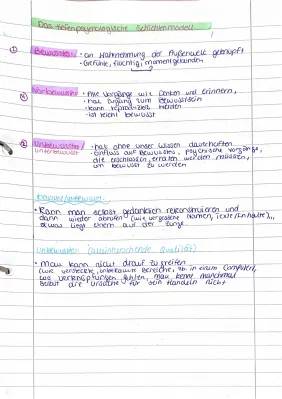 Das tiefenpsychologische Schichtenmodell
① Bewusstes • an Wahrnehmung der Außenwelt geknüpft
• Gefühle, flüchtig, momentgebunden
Vorbewusstes • Alle Vorgänge wie Denken und Erinnern,
• hat Zugang zum Bewusstsein
• kann reproduziert werden
• ist leicht bewusst
② Unbewusstes / • hat ohne unser Wissen
unterbewusst • einfluss auf Bewusstes, psychische Vorgänge,
die erschlossen, erraten werden müssen,
um bewusst zu werden
• Kann man selbst gedanklich rekonstruieren und
dann wieder abrufen (wie vergessene Namen, Texte/Inhalte),
etwas liegt einem auf der Zunge.
unbewusstes
• Man kann nicht drauf zugreifen
(wie versteckte, unbekannte Bereiche, in einem Computer,
wo Verknüpfungen fehlen, man kenne manchmal
selbst die Ursache für sein Handeln nicht